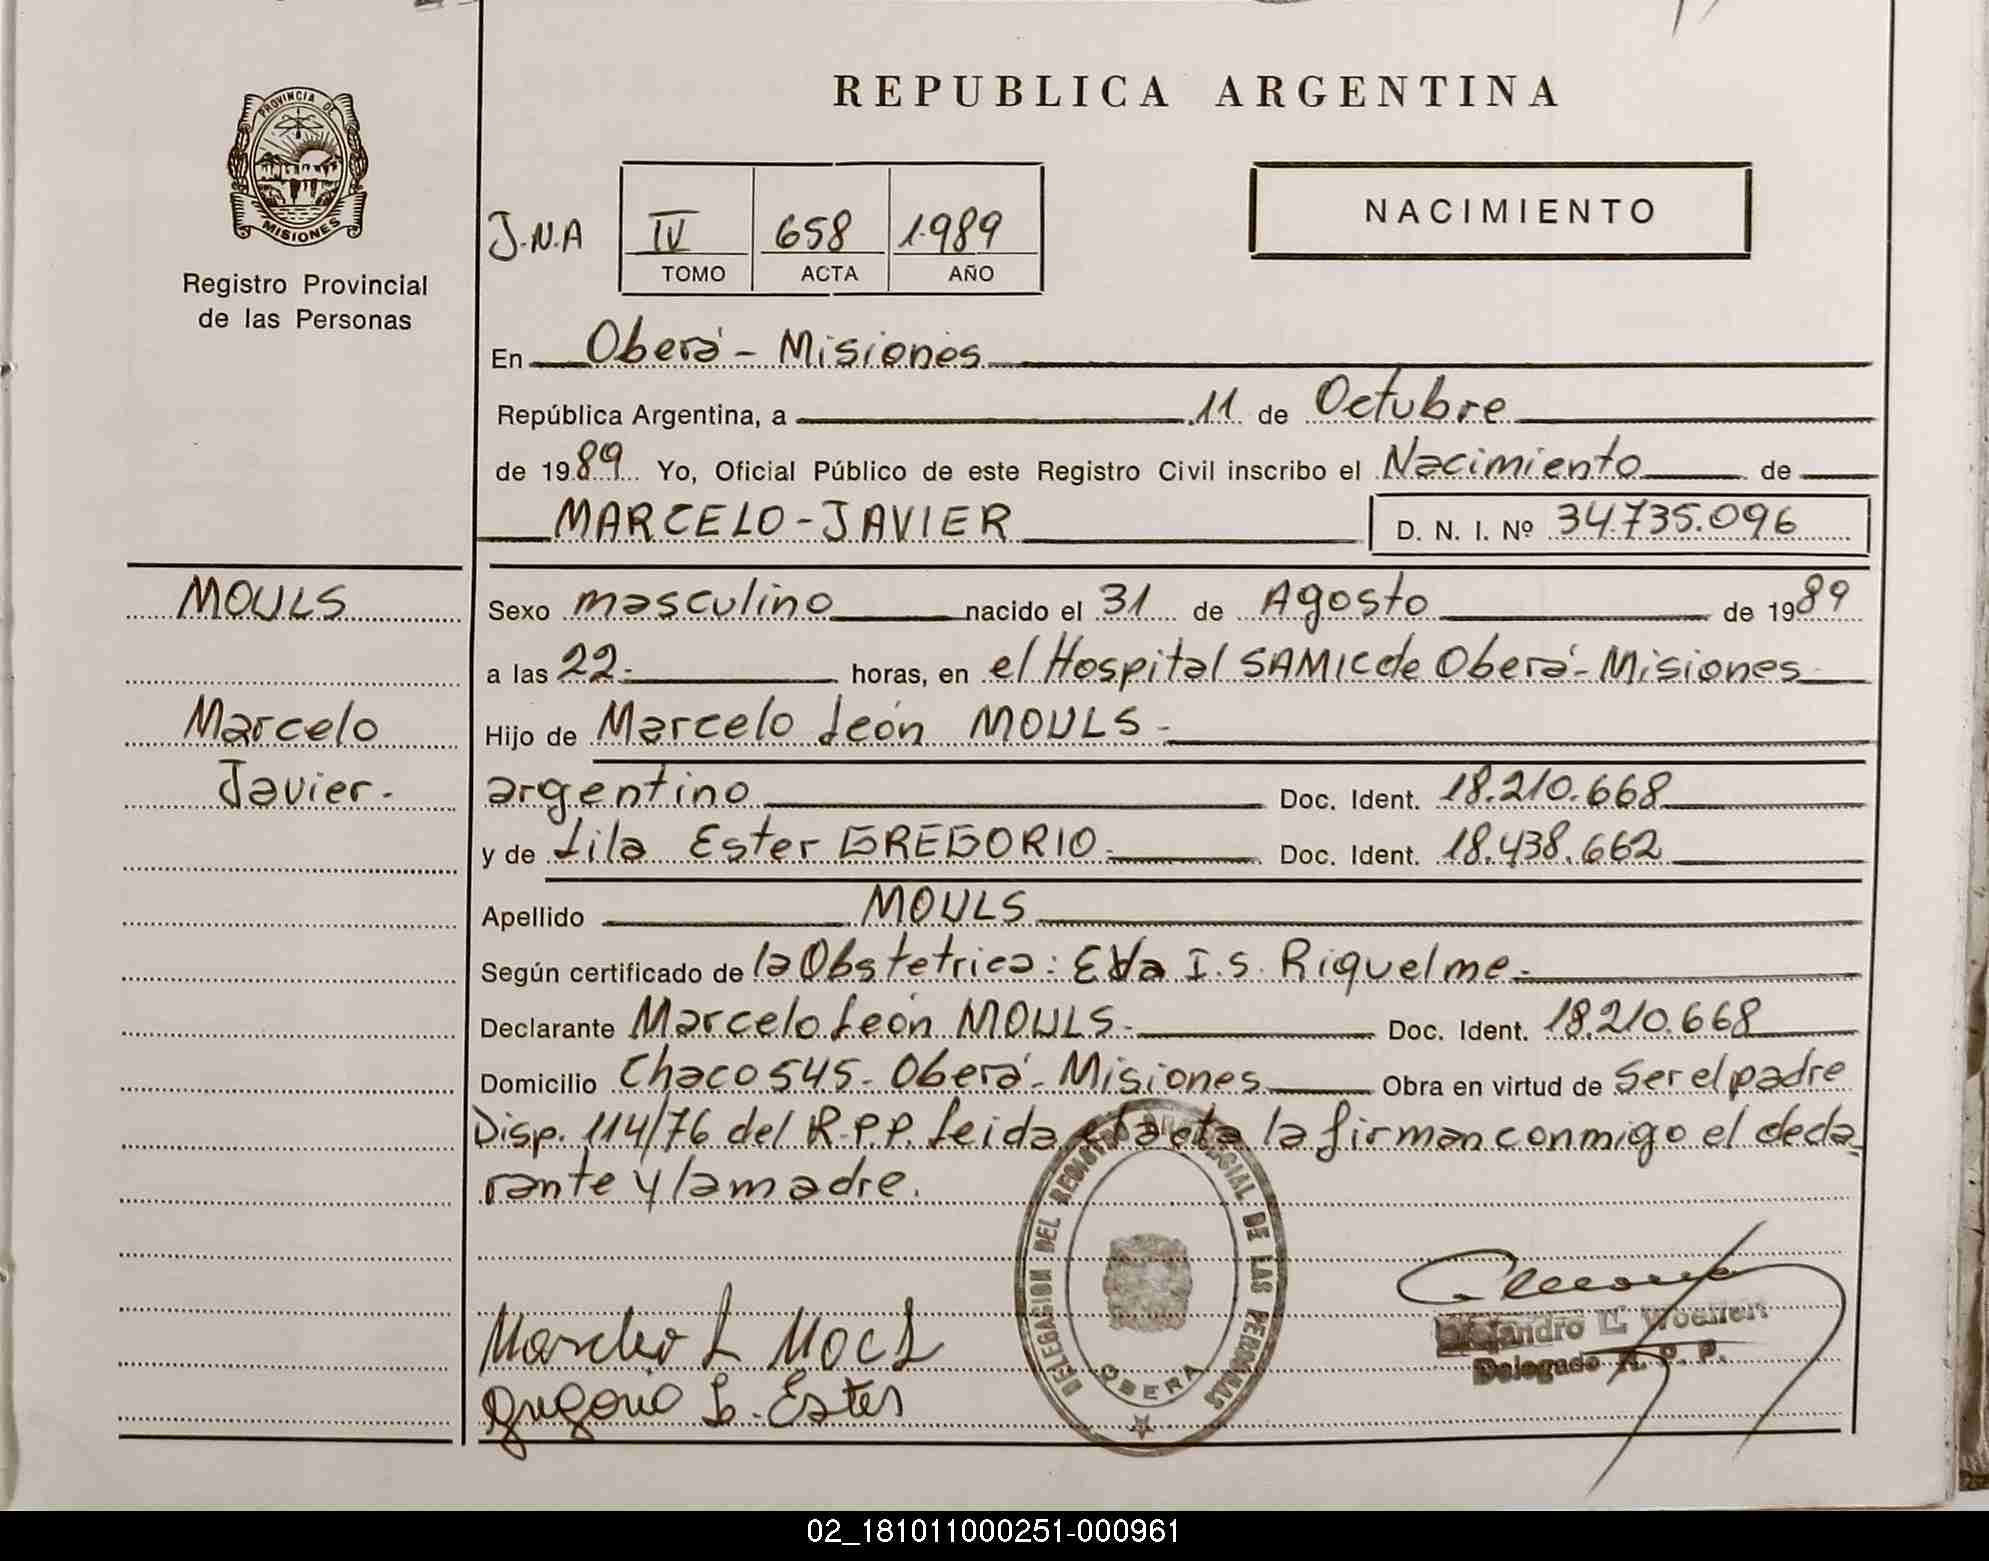 REPUBLICA ARGENTINA
PROVINCIA DE
MISIONES
Registro Provincial
de las Personas
J.N.A IV 658 1989
TOMO ACTA AÑO
NACIMIENTO
En Oberá - Misiones
República Argentina, a 11 de Octubre
de 1989 Yo, Oficial Público de este Registro Civil inscribo el Nacimiento de
MARCELO-JAVIER D. N. I. Nº 34.735.096
MOULS
Marcelo
Javier.-
Sexo masculino nacido el 31 de Agosto de 1989
a las 22.- horas, en el Hospital SAMIC de Oberá - Misiones
Hijo de Marcelo León MOULS -
argentino Doc. Ident. 18.210.668
y de Lila Ester GREGORIO.- Doc. Ident. 18.438.662
Apellido MOULS
Según certificado de la Obstetrica: Elda I.S. Riquelme.-
Declarante Marcelo León MOULS.- Doc. Ident. 18.210.668
Domicilio Chaco 545- Oberá - Misiones Obra en virtud de Ser el padre
Disp. 114/76 del R.P.P. Leida el acta la firman conmigo el decla
rante y la madre.
DELEGACION DEL REGISTRO PROVINCIAL DE LAS PERSONAS
OBERA
Marcelo L Mouls
Gregorio L. Ester
Alejandro
Delegado R. P. P.
02_181011000251-000961